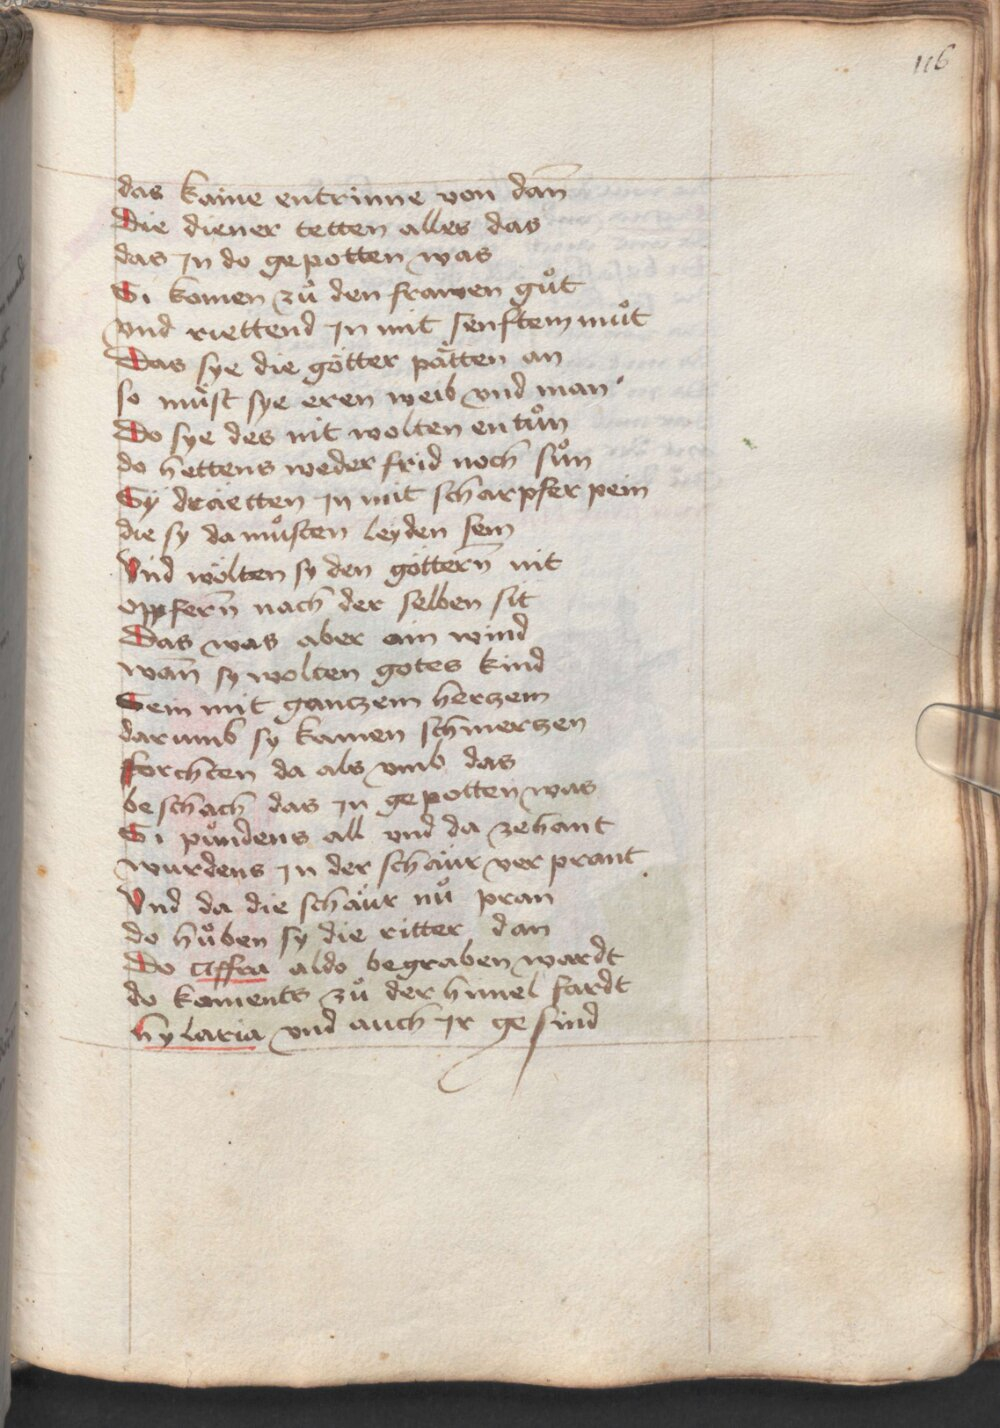 116
das kaine entrinne von dan̄
Die diener tetten alles das
das Jn do gepotten was
Si komen zů den frawen gůt
vnd riettend Jn mit senftem můt
Das sye die götter pätten an
so můst sye eren weib vnd man
Do sye des nit wolten entůn
do hettens weder frid noch sůn
Sÿ dräetten Jn mit scharpfer pein
die sy da můsten leyden sein
Vnd wölten sy den göttern̄ nit
oppfern̄ nach der selben sit
Das was aber ain wind
wan̄ sy wolten gotes kind
Sein mit ganczem herczem
darumb sy kamen schmerszen
forchten da als vmb das
beschach das Jn gepotten was
Si půndens all vnd da zehant
wurdens Jn der schäur verprant
Vnd da die schäur nů pran
do hůben sy die ritter dan
Do Affra aldo begraben wardt
do koments zů der himel fardt
hylaria vnd auch Jr gesind